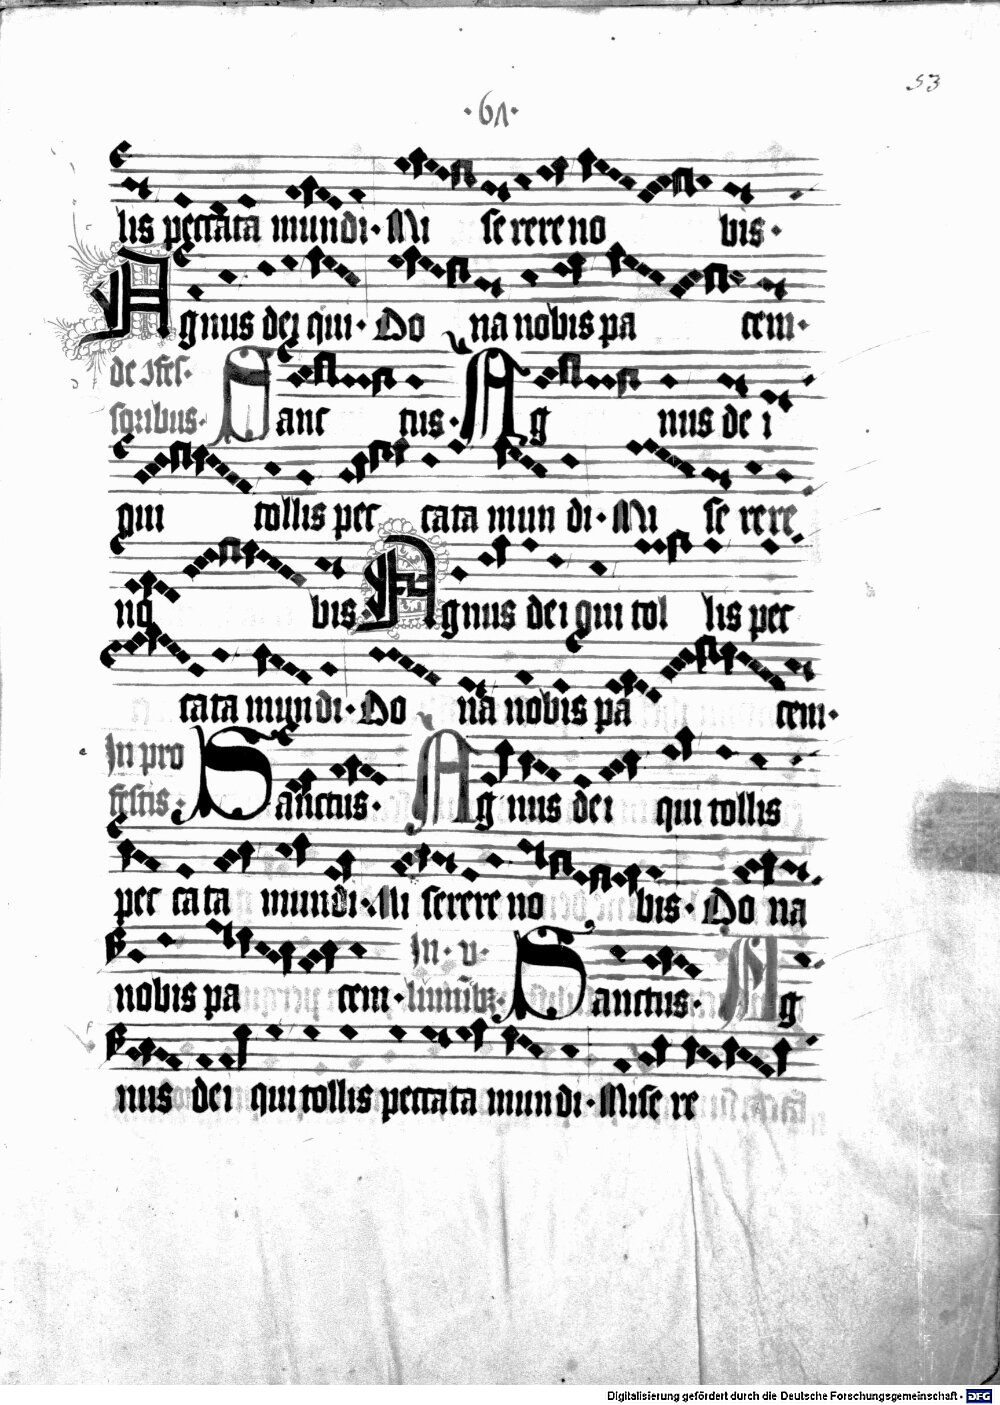 53
·61·
lis peccata mundi· Mi se rere no bis·
Agnus dei qui· Do na nobis pa cem·
de ɔfes· Sanc tus· Ag nus de i
soribus·
qui tollis pec cata mun di· Mi se rere
no bis· Agnus dei qui tol lis pec
cata mundi· Do na nobis pa cem·
In pro Sanctus· Agnus dei qui tollis
festis·
pec cata mundi· Mi serere no bis· Do na
nobis pa cem· In· v· Sanctus· Ag
nus dei qui tollis peccata mundi· Misere
Digitalisierung gefördert durch die Deutsche Forschungsgemeinschaft - DFG